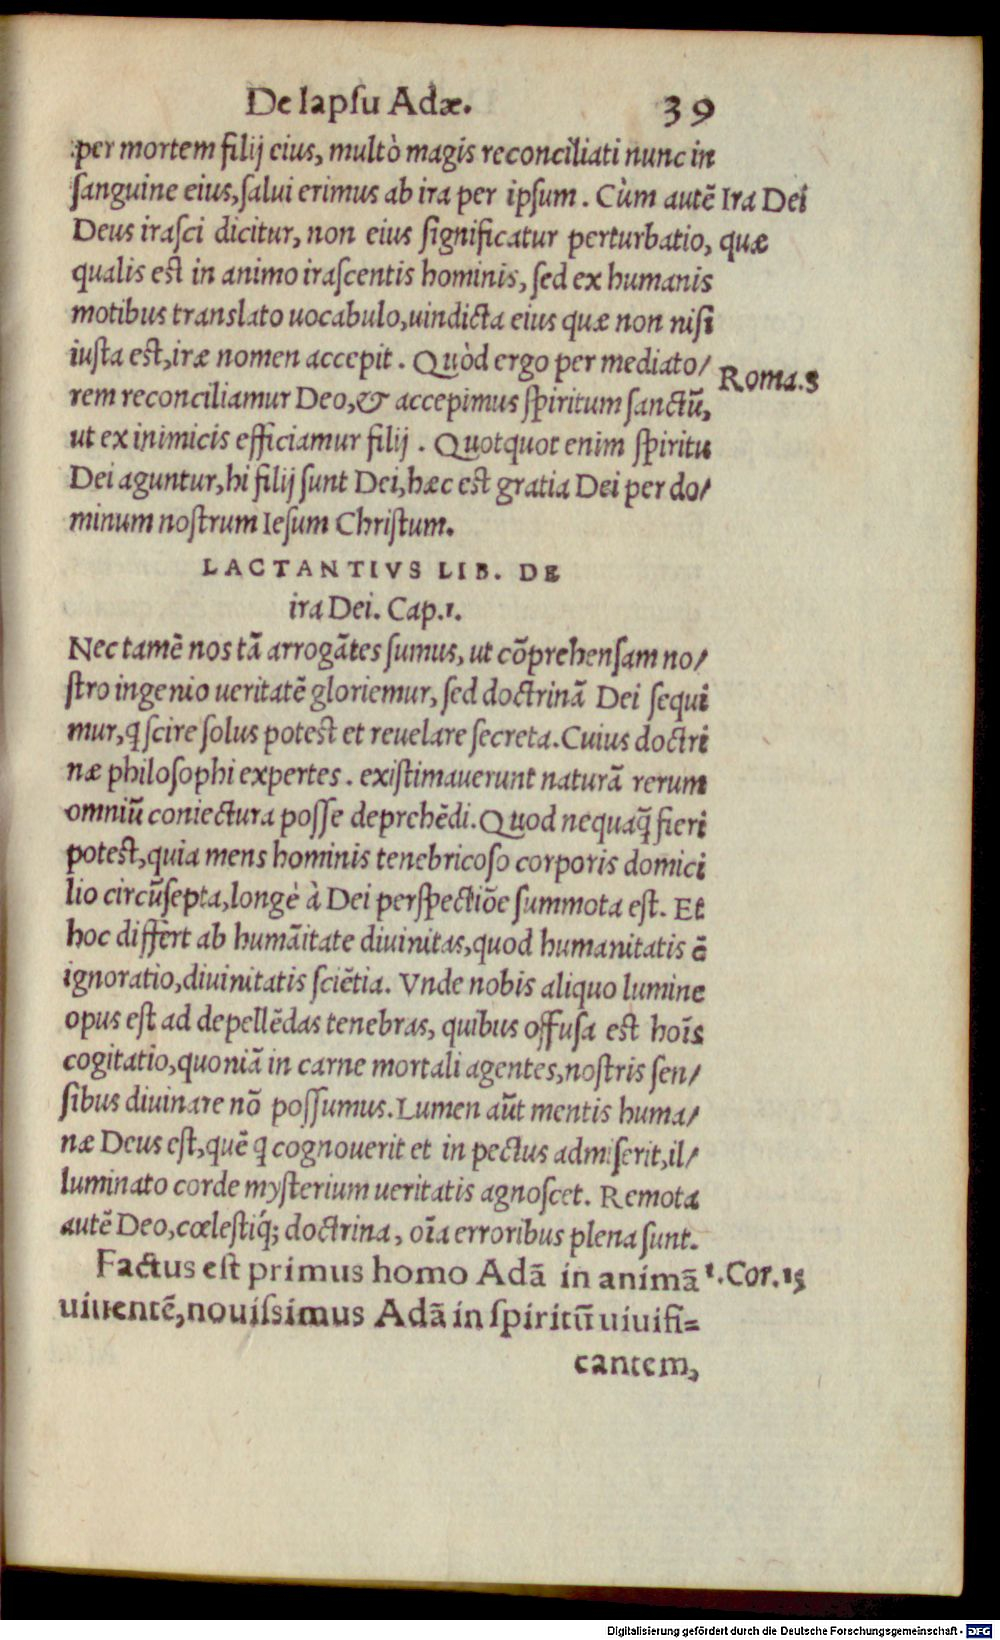 De lapsu Adæ. 39
per mortem filij eius, multò magis reconciliati nunc in
sanguine eius, salui erimus ab ira per ipsum. Cùm autē Ira Dei
Deus irasci dicitur, non eius significatur perturbatio, quæ
qualis est in animo irascentis hominis, sed ex humanis
motibus translato uocabulo, uindicta eius quæ non nisi
iusta est, iræ nomen accepit. Quòd ergo per mediato/
Roma.8
rem reconciliamur Deo, & accepimus spiritum sanctū,
ut ex inimicis efficiamur filij. Quotquot enim spiritu
Dei aguntur, hi filij sunt Dei, hæc est gratia Dei per do/
minum nostrum Iesum Christum.
LACTANTIVS LIB. DE
ira Dei. Cap.1.
Nec tamē nos tā arrogātes sumus, ut cōprehensam no/
stro ingenio ueritatē gloriemur, sed doctrinā Dei sequi
mur, q̃ scire solus potest et reuelare secreta. Cuius doctri
næ philosophi expertes. existimauerunt naturā rerum
omniū coniectura posse deprehēdi. Quod nequaq̃ fieri
potest, quia mens hominis tenebricoso corporis domici
lio circūsepta, longè à Dei perspectiōe summota est. Et
hoc differt ab humāitate diuinitas, quod humanitatis ē
ignoratio, diuinitatis sciētia. Vnde nobis aliquo lumine
opus est ad depellēdas tenebras, quibus offusa est hoīs
cogitatio, quoniā in carne mortali agentes, nostris sen/
sibus diuinare nō possumus. Lumen aūt mentis huma/
næ Deus est, quē q̃ cognouerit et in pectus admiserit, il/
luminato corde mysterium ueritatis agnoscet. Remota
autē Deo, cœlestiq́; doctrina, oīa erroribus plena sunt.
Factus est primus homo Adā in animā 1.Cor.15
uiuentē, nouissimus Adā in spiritū uiuifi=
cantem,
Digitalisierung gefördert durch die Deutsche Forschungsgemeinschaft - DFG